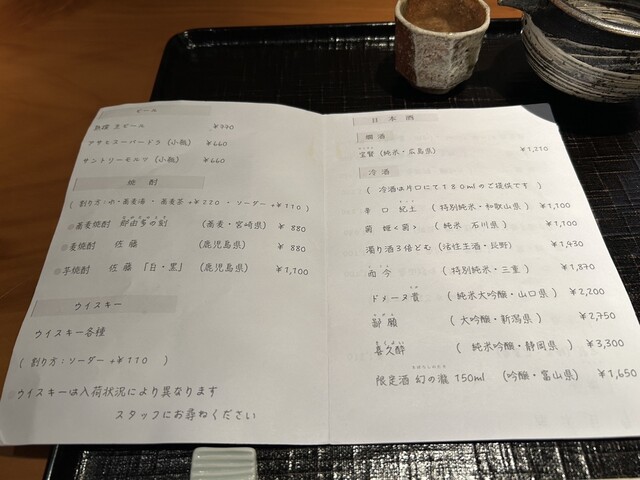 ビール
生ビール ¥770
アサヒスーパードラ (小瓶) ¥660
サントリーモルツ (小瓶) ¥660
焼酎
蕎麦焼酎 (蕎麦・宮崎県) ¥880
麦焼酎 佐藤 (鹿児島県) ¥880
芋焼酎 佐藤 「白・黒」 (鹿児島県) ¥1,100
ウイスキー
ウイスキー各種
( 割り方:ソーダー +¥110 )
ウイスキーは入荷状況により異なります
スタッフにお尋ねください
日本酒
燗酒
宝賢 (純米・広島県) ¥1,210
冷酒
( 冷酒は片口にて180mlのご提供です )
辛口 紀土 ( 特別純米・和歌山県 ) ¥1,100
菊姫<菊> ( 純米 石川県 ) ¥1,100
濁り酒 (活性生酒・長野) ¥1,430
而今 ( 特別純米・三重 ) ¥1,870
ドメーヌ貴 ( 純米大吟醸・山口県 ) ¥2,200
鄙願 ( 大吟醸・新潟県 ) ¥2,750
喜久酔 ( 純米吟醸・静岡県 ) ¥3,300
限定酒 幻の瀧 150ml (吟醸・富山県) ¥1,650